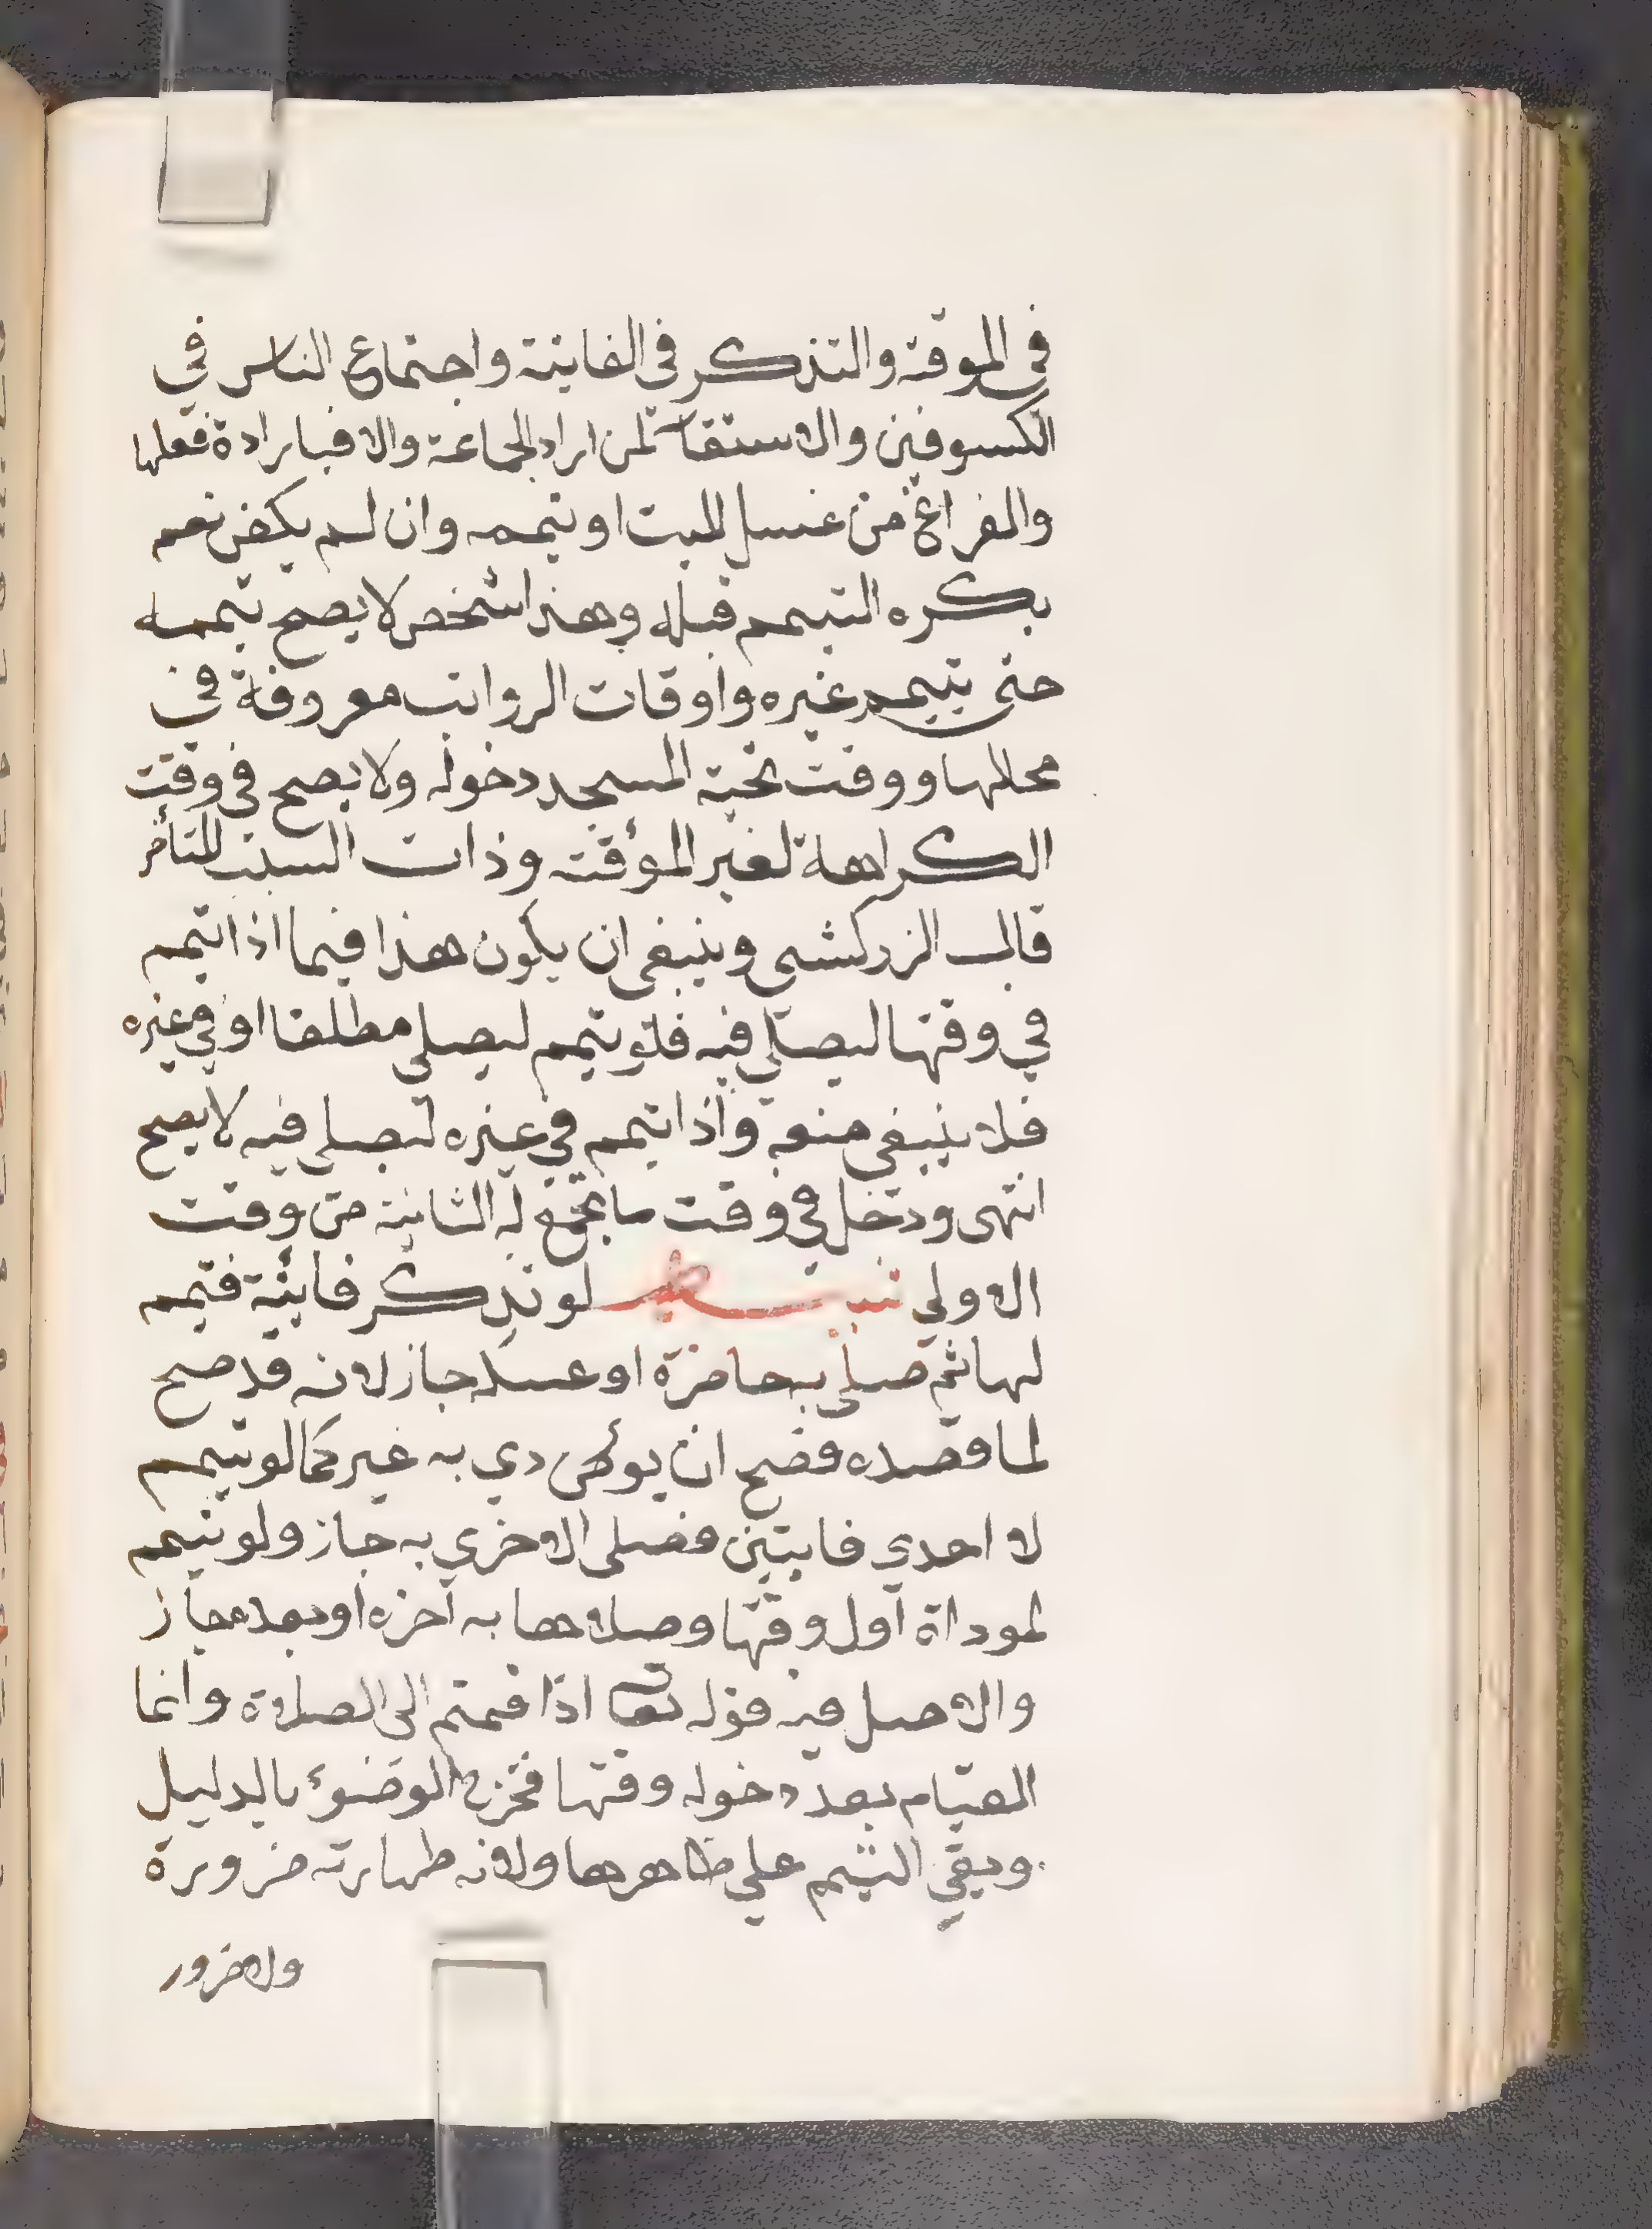 في الموقة والتذكر في الفايتة واجتماع الناس في
الكسوفين والاستقا لمن اراد الجماعة والا فبارادة فعلها
والفراغ من غسل الميت او تيممه وان لم يكفن نعم
يكره التيمم قبله وهذا شخص لا يصح تيممه
حتى تييمم غيره واوقات الرواتب معروفة في
محلها ووقت تحية المسجد دخوله ولا يصح في وقت
الكراهة لغير المؤقتة وذات السبب
قال الزركشي وينبغي ان يكون هذا فيما اذا تيمم
في وقتها ليصلي فيه فلو تيمم ليصلي مطلقا او في غيره
فلا ينبغي منعه واذا تيمم في غيره ليصلي فيه لا يصح
انتهى ودخل في وقت ما يجمع له الثانية من وقت
الاولي تنبيه لو تذكر فايتة فتيمم
لها ثم صلى بحاضرة او عسله جاز لانه قد صح
لما قصده فصح ان يؤ دي به غير كما لو تيمم
لا احدي فايتين فصلى الاخري به جاز ولو تيمم
لموداة اول وقتها وصلاها به آخره او بعده جاز
والاصل فيه قوله تعا اذا قمتم الى الصلاة وانما
القيام بعد دخوله وقتها فخرج الوضوء بالدليل
وبقي التيمم علي ظاهرها ولانه طهارته ضرورة
ولا ضرور